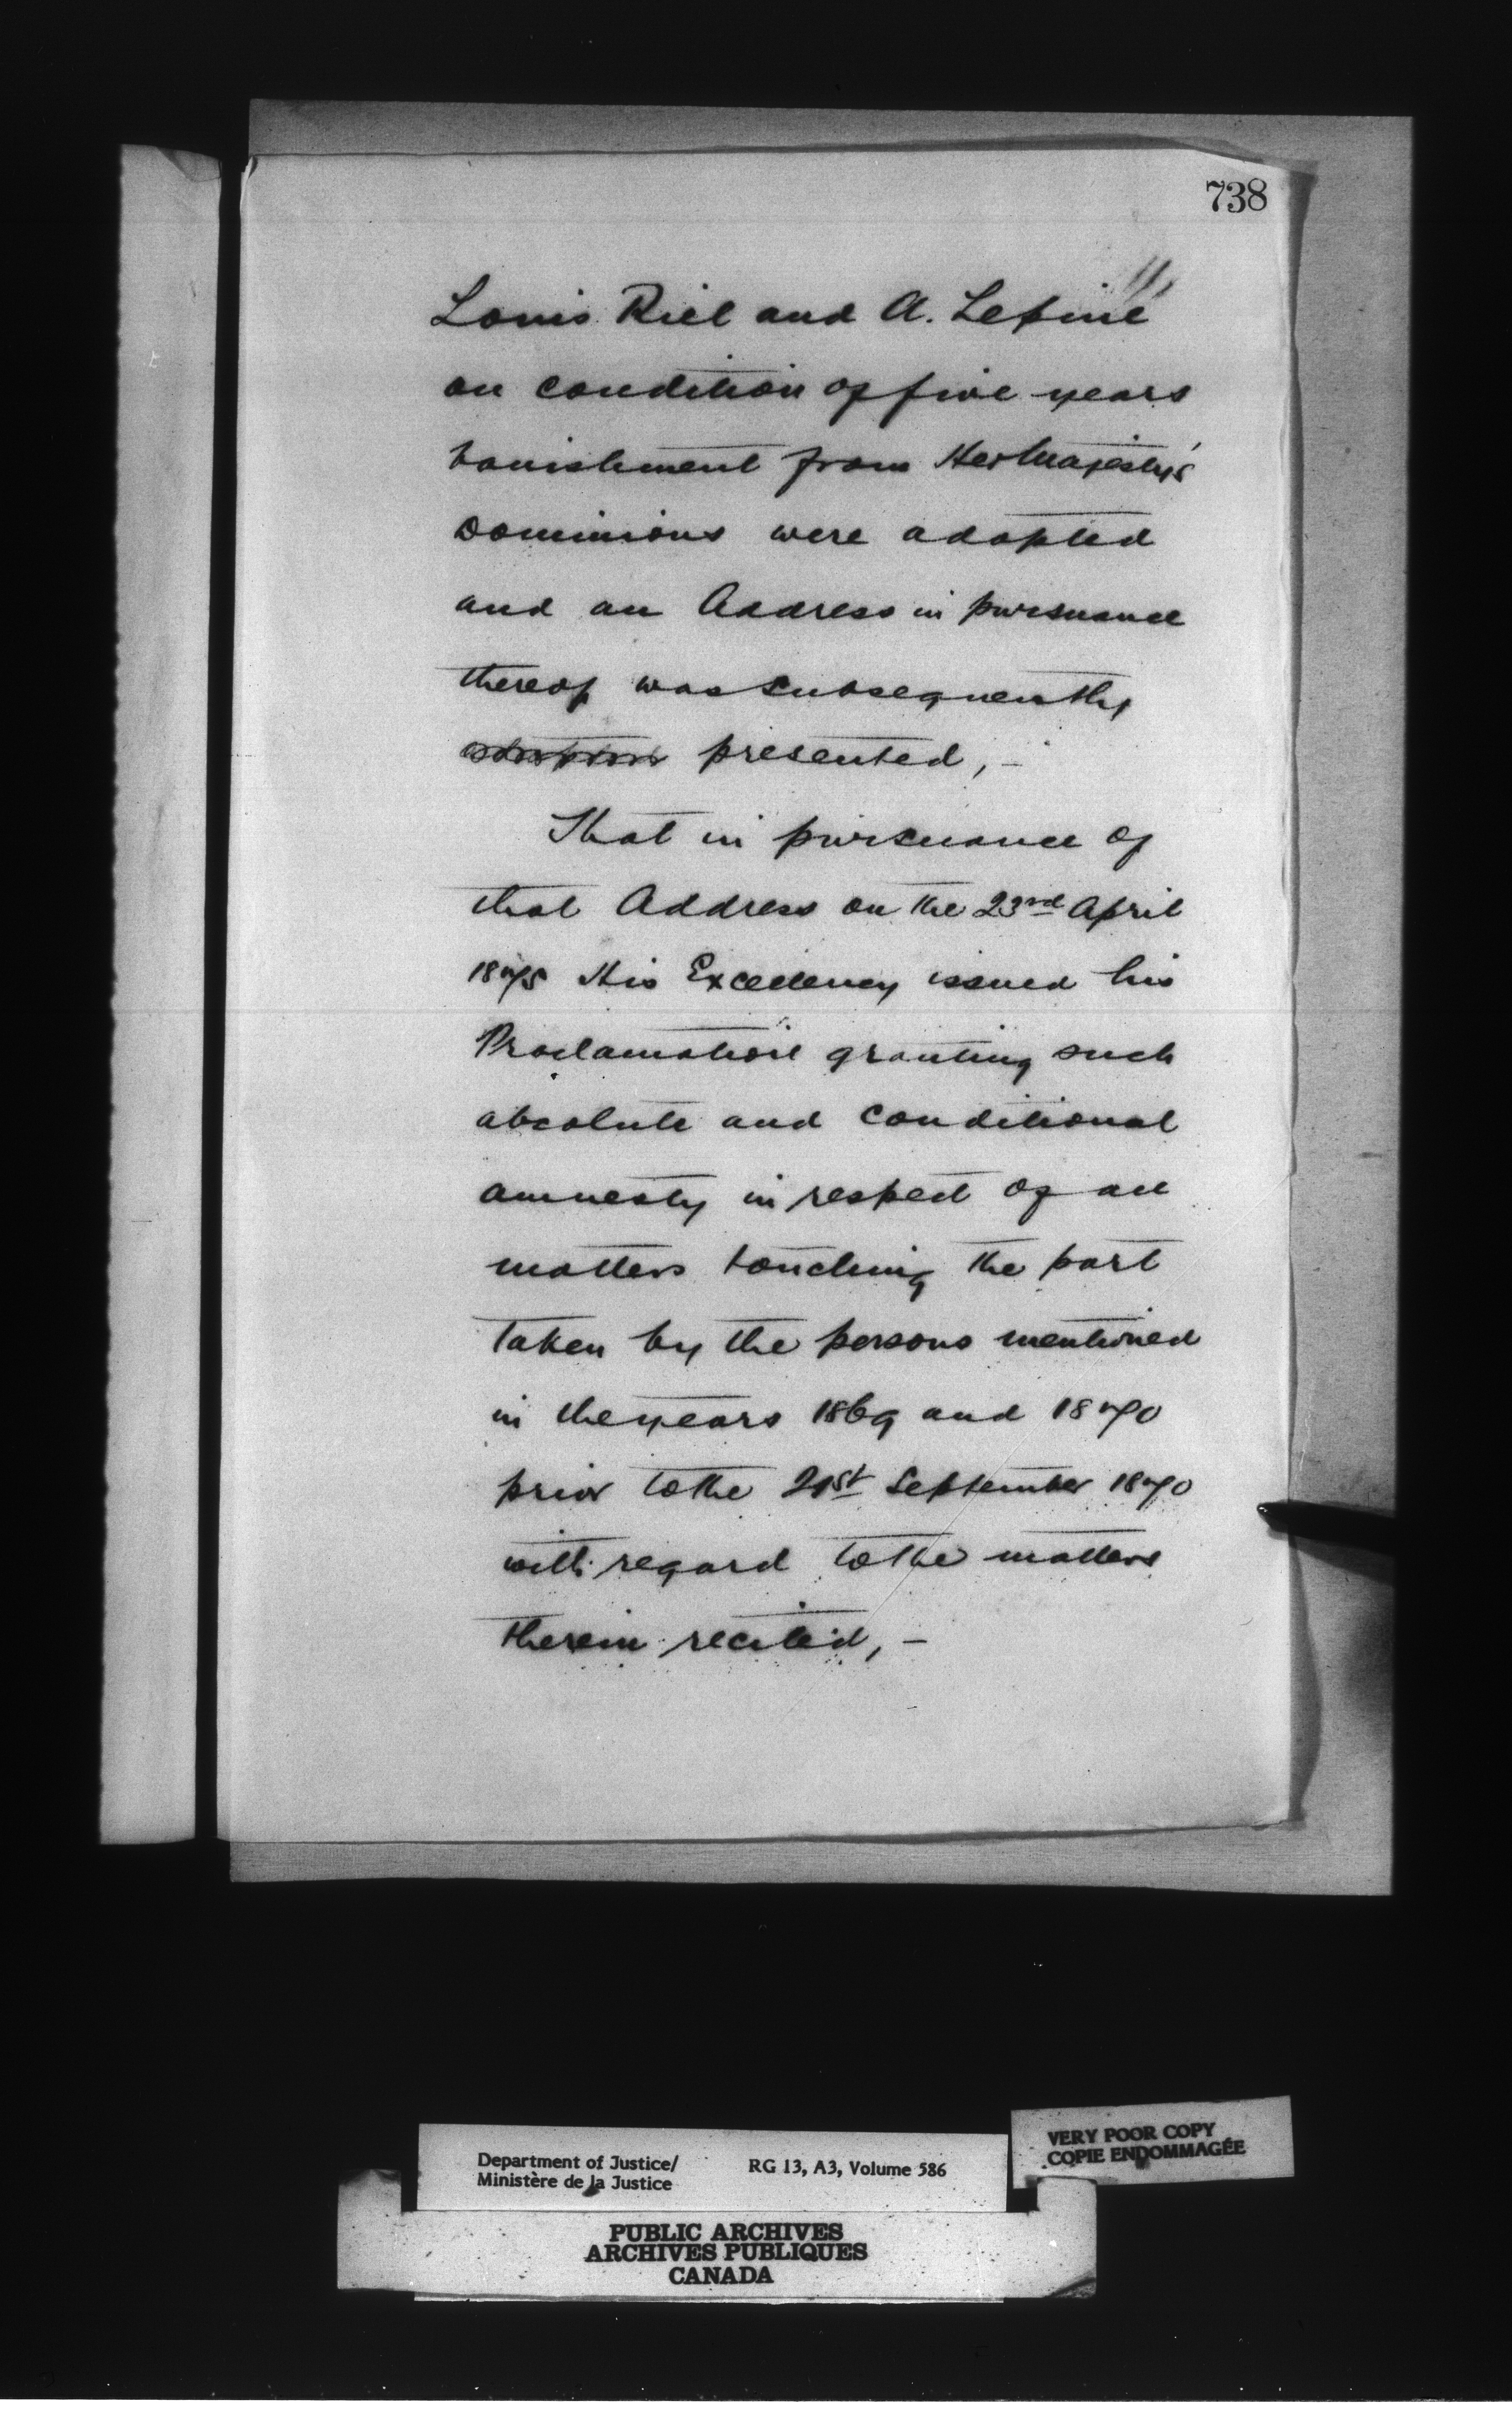 738
Louis Riel and A. Lepine
on condition of five years
banishment from Her Majesty's
Dominions were adopted
and an Address in pursuance
thereof was subsequently
presented, –
That in pursuance of
that Address on the 23rd April
1875 His Excellency issued his
Proclamation granting such
absolute and conditional
amnesty in respect of all
matters touching the part
taken by the persons mentioned
in the years 1869 and 1870
prior to the 21st September 1870
with regard to the matters
therein recited, –
VERY POOR COPY
COPIE ENDOMMAGÉE
Department of Justice/ RG 13, A3, Volume 586
Ministère de la Justice
PUBLIC ARCHIVES
ARCHIVES PUBLIQUES
CANADA